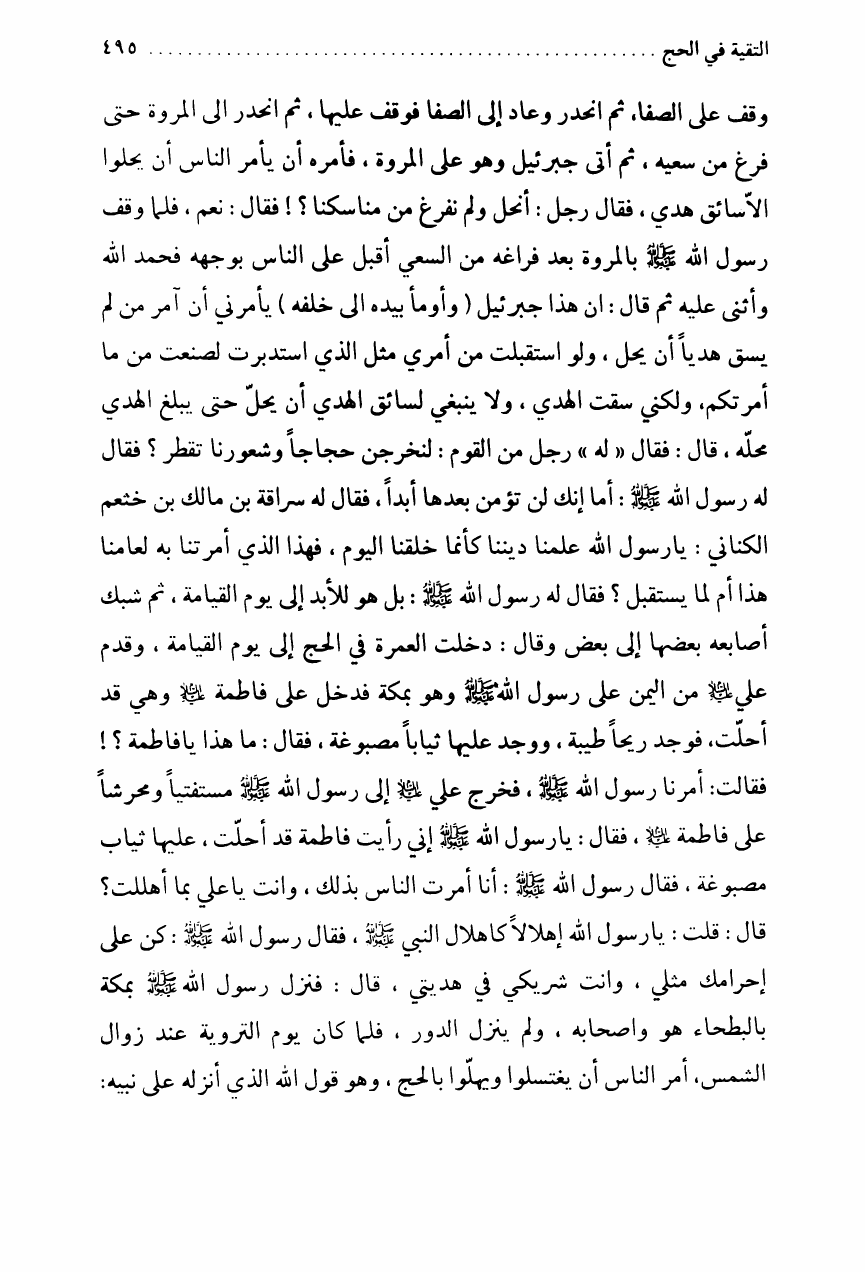 التقية في الحج ................................................... ٤٩٥
وقف على الصفا، ثم انحدر وعاد إلى الصفا فوقف عليها ، ثم انحدر الى المروة حتى
فرغ من سعيه ، ثم أتى جبرئيل وهو على المروة ، فأمره أن يأمر الناس أن يحلوا
الاّ سائق هدي ، فقال رجل : أنحل ولم نفرغ من مناسكنا ؟ ! فقال : نعم ، فلما وقف
رسول الله ﷺ بالمروة بعد فراغه من السعي أقبل على الناس بوجهه فحمد الله
وأثنى عليه ثم قال : ان هذا جبرئيل ( وأومأ بيده الى خلفه ) يأمرني أن آمر من لم
يسق هدياً أن يحل ، ولو استقبلت من أمري مثل الذي استدبرت لصنعت من ما
أمرتكم، ولكني سقت الهدي ، ولا ينبغي لسائق الهدي أن يحلّ حتى يبلغ الهدي
محلّه ، قال : فقال « له » رجل من القوم : لنخرجن حجاجاً وشعورنا تقطر ؟ فقال
له رسول الله ﷺ : أما إنك لن تؤمن بعدها أبداً ، فقال له سراقة بن مالك بن خثعم
الكناني : يارسول الله علمنا ديننا كأنما خلقنا اليوم ، فهذا الذي أمرتنا به لعامنا
هذا أم لما يستقبل ؟ فقال له رسول الله ﷺ : بل هو للأبد إلى يوم القيامة ، ثم شبك
أصابعه بعضها إلى بعض وقال : دخلت العمرة في الحج إلى يوم القيامة ، وقدم
علي من اليمن على رسول الله ﷺ وهو بمكة فدخل على فاطمة وهي قد
أحلّت، فوجد ريحاً طيبة ، ووجد عليها ثياباً مصبوغة ، فقال : ما هذا يافاطمة ؟ !
فقالت: أمرنا رسول الله ﷺ ، فخرج علي إلى رسول الله ﷺ مستفتياً ومحرشاً
على فاطمة ، فقال : يارسول الله ﷺ إني رأيت فاطمة قد أحلّت ، عليها ثياب
مصبوغة ، فقال رسول الله ﷺ : أنا أمرت الناس بذلك ، وانت ياعلي بما أهللت؟
قال : قلت : يارسول الله إهلالاً كاهلال النبي ﷺ ، فقال رسول الله ﷺ : كن على
إحرامك مثلي ، وانت شريكي في هديتي ، قال : فنزل رسول الله ﷺ بمكة
بالبطحاء هو واصحابه ، ولم ينزل الدور ، فلما كان يوم التروية عند زوال
الشمس، أمر الناس أن يغتسلوا ويهلّوا بالحج ، وهو قول الله الذي أنزله على نبيه: